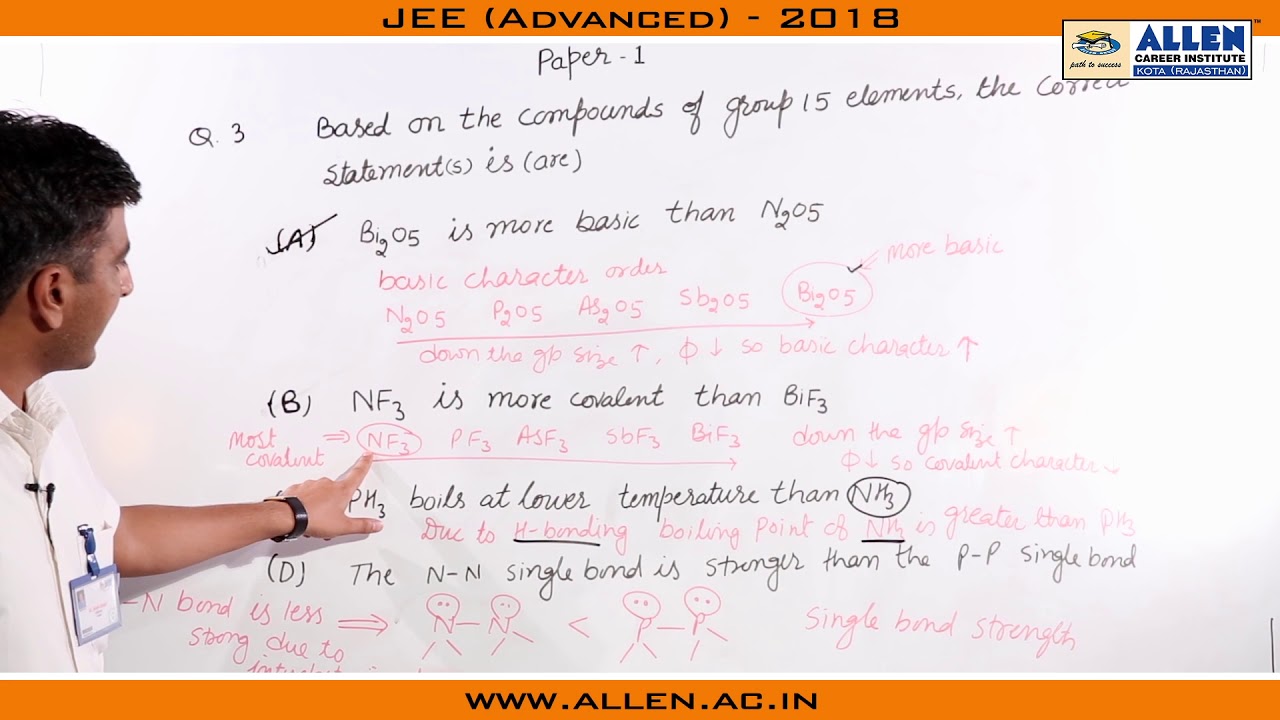 JEE (ADVANCED) - 2018
ALLEN
CAREER INSTITUTE
KOTA (RAJASTHAN)
path to success
TM
Paper - 1
Q. 3 Based on the compounds of group 15 elements, the correct
statement(s) is (are)
(A) Bi2O5 is more basic than N2O5
basic character order
more basic
N2O5 P2O5 As2O5 Sb2O5 Bi2O5
down the gp size ↑, Φ ↓ so basic character ↑
(B) NF3 is more covalent than BiF3
most covalent ⇒ NF3 PF3 AsF3 SbF3 BiF3
down the gp size ↑
Φ↓ so covalent character ↓
PH3 boils at lower temperature than NH3
Due to H-bonding boiling point of NH3 is greater than PH3
(D) The N-N single bond is stronger than the P-P single bond
-N bond is less
strong due to
⇒ N-N < P-P
single bond strength
WWW.ALLEN.AC.IN